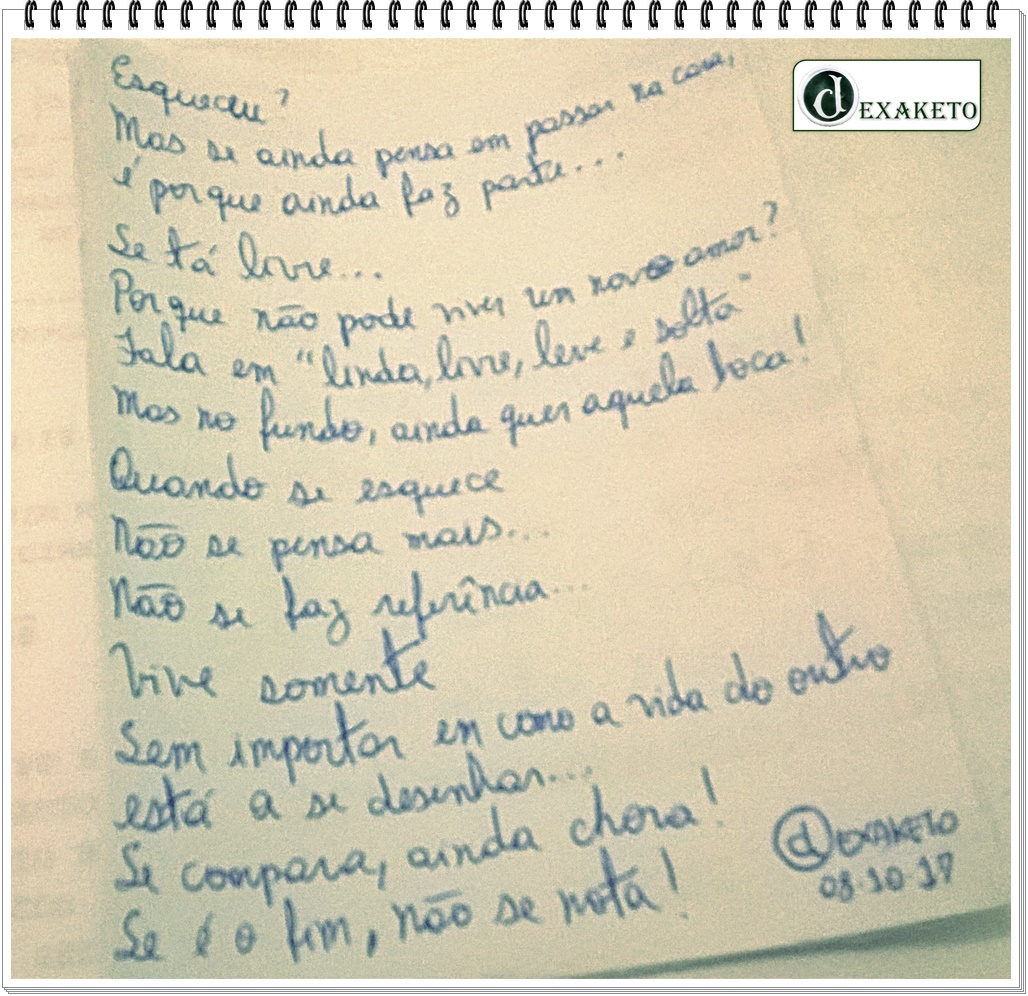 Esqueceu?
Mas se ainda pensa em passar na cara,
é porque ainda faz parte...
Se tá livre...
Porque não pode viver um novo amor?
Fala em "linda, livre, leve e solta"
Mas no fundo, ainda quer aquela boca!
Quando se esquece
Não se pensa mais...
Não se faz referência...
Vive somente
Sem importar em como a vida do outro
está a se desenhar...
Se compara, ainda chora!
Se é o fim, não se nota!
dEXAKETO
08.10.17
dEXAKETO